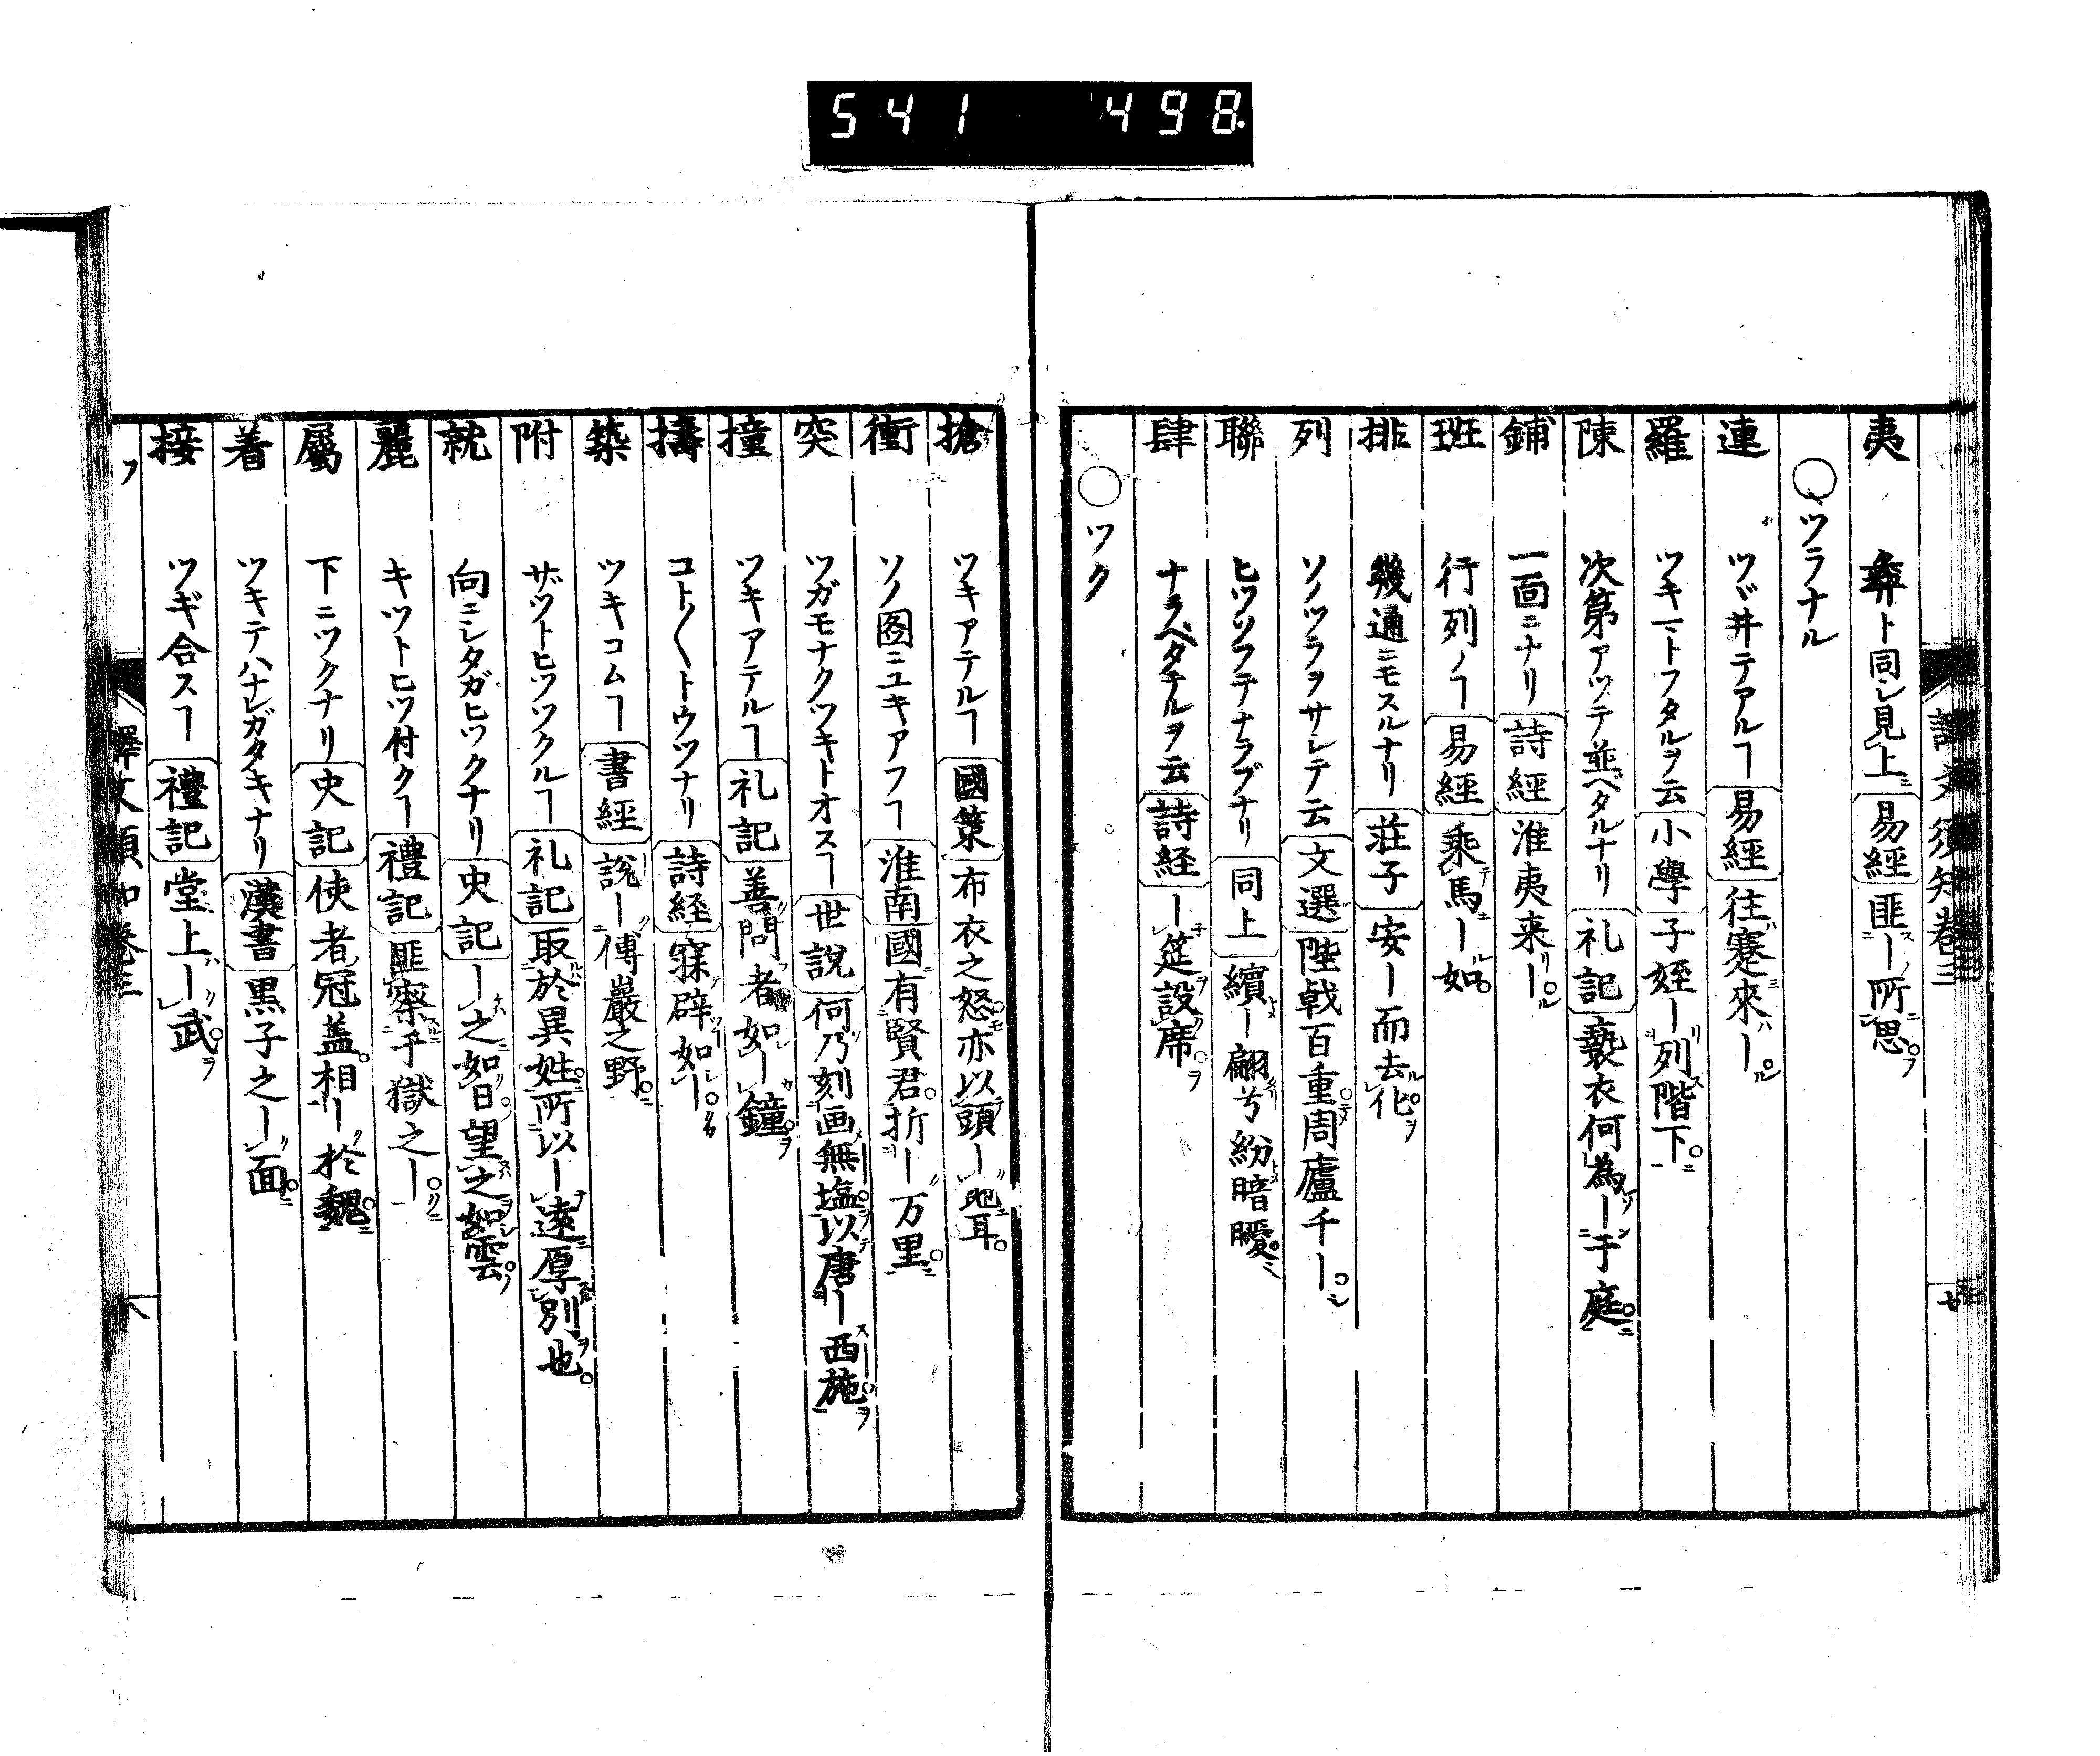 541 498
譯文須知卷三
夷 彝ト同シ見上 易經 匪ー所思
○ツラナル
連 ツヾ井テアルヿ 易經 往蹇來ー
羅 ツキマトフタルヲ云 小學 子姪ー列階下
陳 次第アツテ並ベタルナリ 礼記 褻衣何為ー于庭
鋪 一面ニナリ 詩經 淮夷来ー
班 行列ノヿ 易經 乘馬ー如
排 幾通ニモスルナリ 莊子 安ー而去化
列 ソノツラヲサレテ云 文選 陛戟百重周廬千ー
聯 ヒツソフテナラブナリ 同上 繽ー翩兮紛暗曖
肆 ナラベタテルヲ云 詩経 ー筵設席
○ツク
搶 ツキアテルヿ 國策 布衣之怒亦以頭ー地耳
衝 ソノ図ニユキアフヿ 淮南 國有賢君折ー万里
突 ツガモナクツキトオスヿ 世說 何乃刻画無塩以唐ー西施
撞 ツキアテルヿ 礼記 善問者如ー鐘
擣 コト〱トウツナリ 詩経 寐辟如ー
築 ツキコムヿ 書經 說ー傅巖之野
附 ザツトヒツツクルヿ 礼記 取於異姓所以ー遠厚別也
就 向ニシタガヒツクナリ 史記 ー之如日望之如雲
麗 キツトヒツ付クヿ 禮記 匪察于獄之ー
屬 下ニツクナリ 史記 使者冠盖相ー於魏
着 ツキテハナレガタキナリ 漢書 黒子之ー面
接 ツギ合スヿ 禮記 堂上ー武
ツ 譯文須知卷三 八